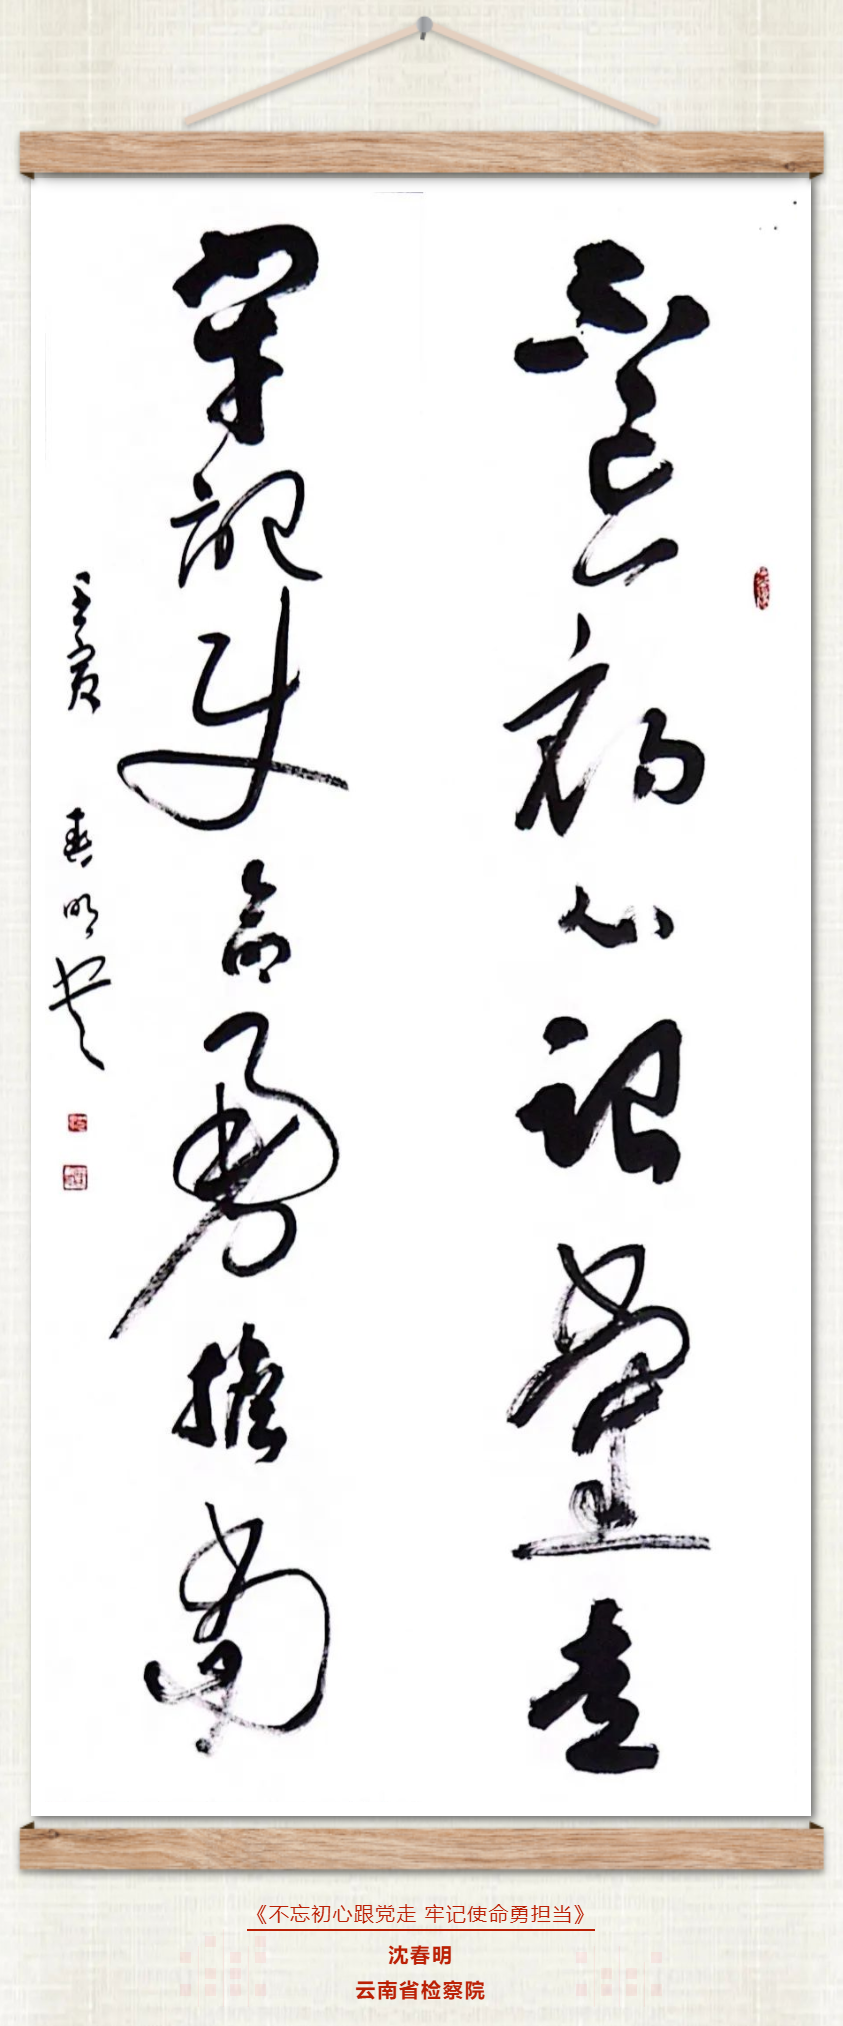 不忘初心跟党走
牢记使命勇担当
壬寅 春明书
《不忘初心跟党走 牢记使命勇担当》
沈春明
云南省检察院